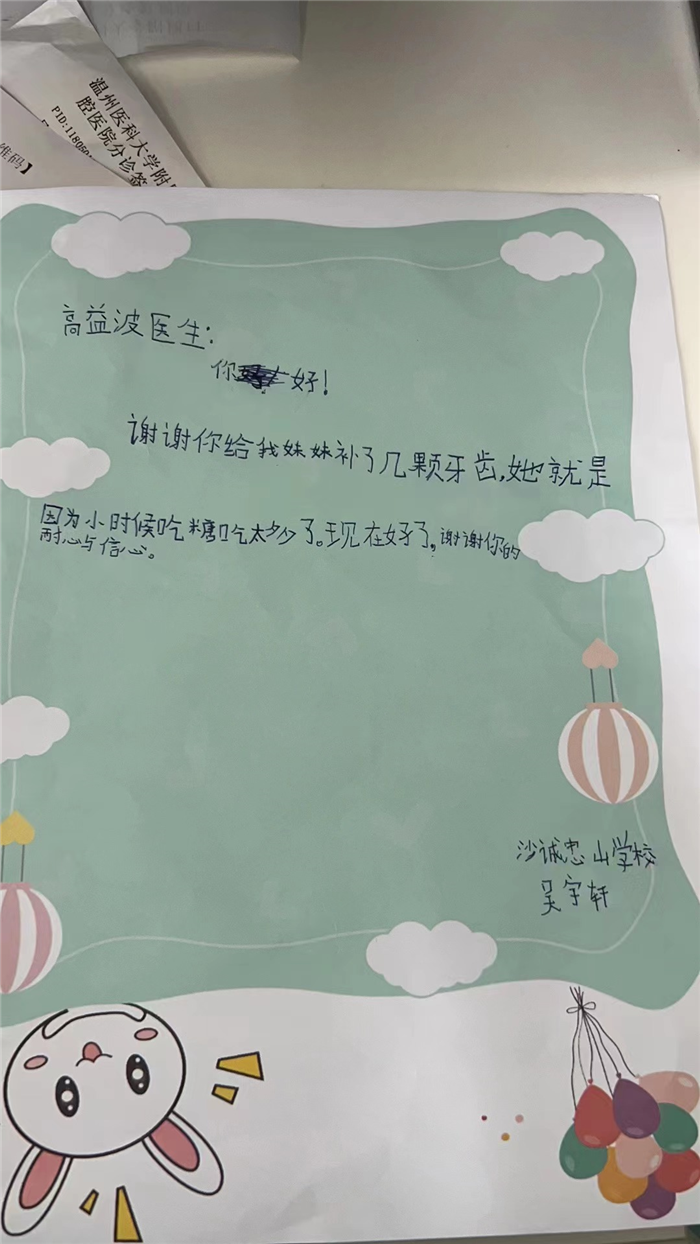 温州医科大学附
腔医院分诊签
PID:118050
维码】
高益波医生:
你好!
谢谢你给我妹妹补了几颗牙齿,她就是
因为小时候吃糖吃太多了。现在好了,谢谢你的
耐心与信心。
沙诚忠山学校
吴宇轩